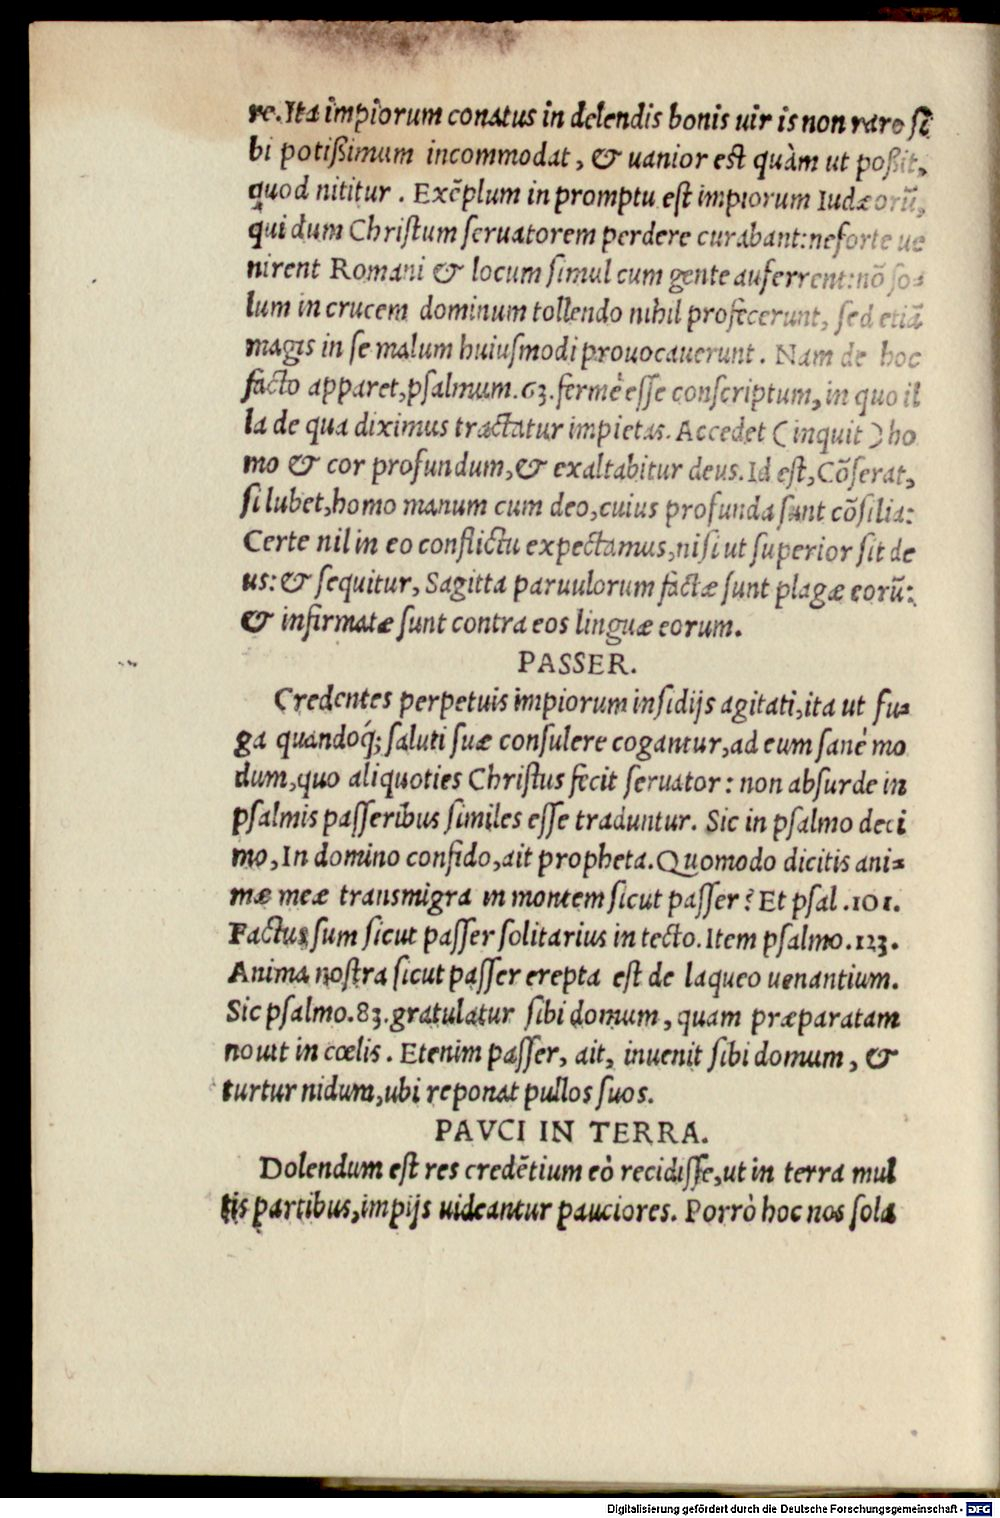 re. Ita impiorum conatus in delendis bonis uir is non raro si
bi potißimum incommodat, & uanior est quàm ut poßit,
quod nititur. Exẽplum in promptu est impiorum Iudæorũ,
qui dum Christum seruatorem perdere curabant: ne forte ue
nirent Romani & locum simul cum gente auferrent: nõ so-
lum in crucem dominum tollendo nihil profecerunt, sed etiã
magis in se malum huiusmodi prouocauerunt. Nam de hoc
facto apparet, psalmum. 63. fermè esse conscriptum, in quo il
la de qua diximus tractatur impietas. Accedet (inquit) ho
mo & cor profundum, & exaltabitur deus. Id est, Cõserat,
si lubet, homo manum cum deo, cuius profunda sunt cõsilia:
Certe nil in eo conflictu expectamus, nisi ut superior sit de
us: & sequitur, Sagitta paruulorum factæ sunt plagæ eorũ:
& infirmatæ sunt contra eos linguæ eorum.
PASSER.
Credentes perpetuis impiorum insidijs agitati, ita ut fu-
ga quandoq́; saluti suæ consulere cogantur, ad eum sanè mo
dum, quo aliquoties Christus fecit seruator: non absurde in
psalmis passeribus similes esse traduntur. Sic in psalmo deci
mo, In domino confido, ait propheta. Quomodo dicitis ani-
mæ meæ transmigra in montem sicut passer? Et psal. 101.
Factus sum sicut passer solitarius in tecto. Item psalmo. 123.
Anima nostra sicut passer erepta est de laqueo uenantium.
Sic psalmo. 83. gratulatur sibi domum, quam præparatam
nouit in cœlis. Etenim passer, ait, inuenit sibi domum, &
turtur nidum, ubi reponat pullos suos.
PAVCI IN TERRA.
Dolendum est res credẽtium eò recidisse, ut in terra mul
tis partibus, impijs uideantur pauciores. Porrò hoc nos sola
Digitalisierung gefördert durch die Deutsche Forschungsgemeinschaft - DFG